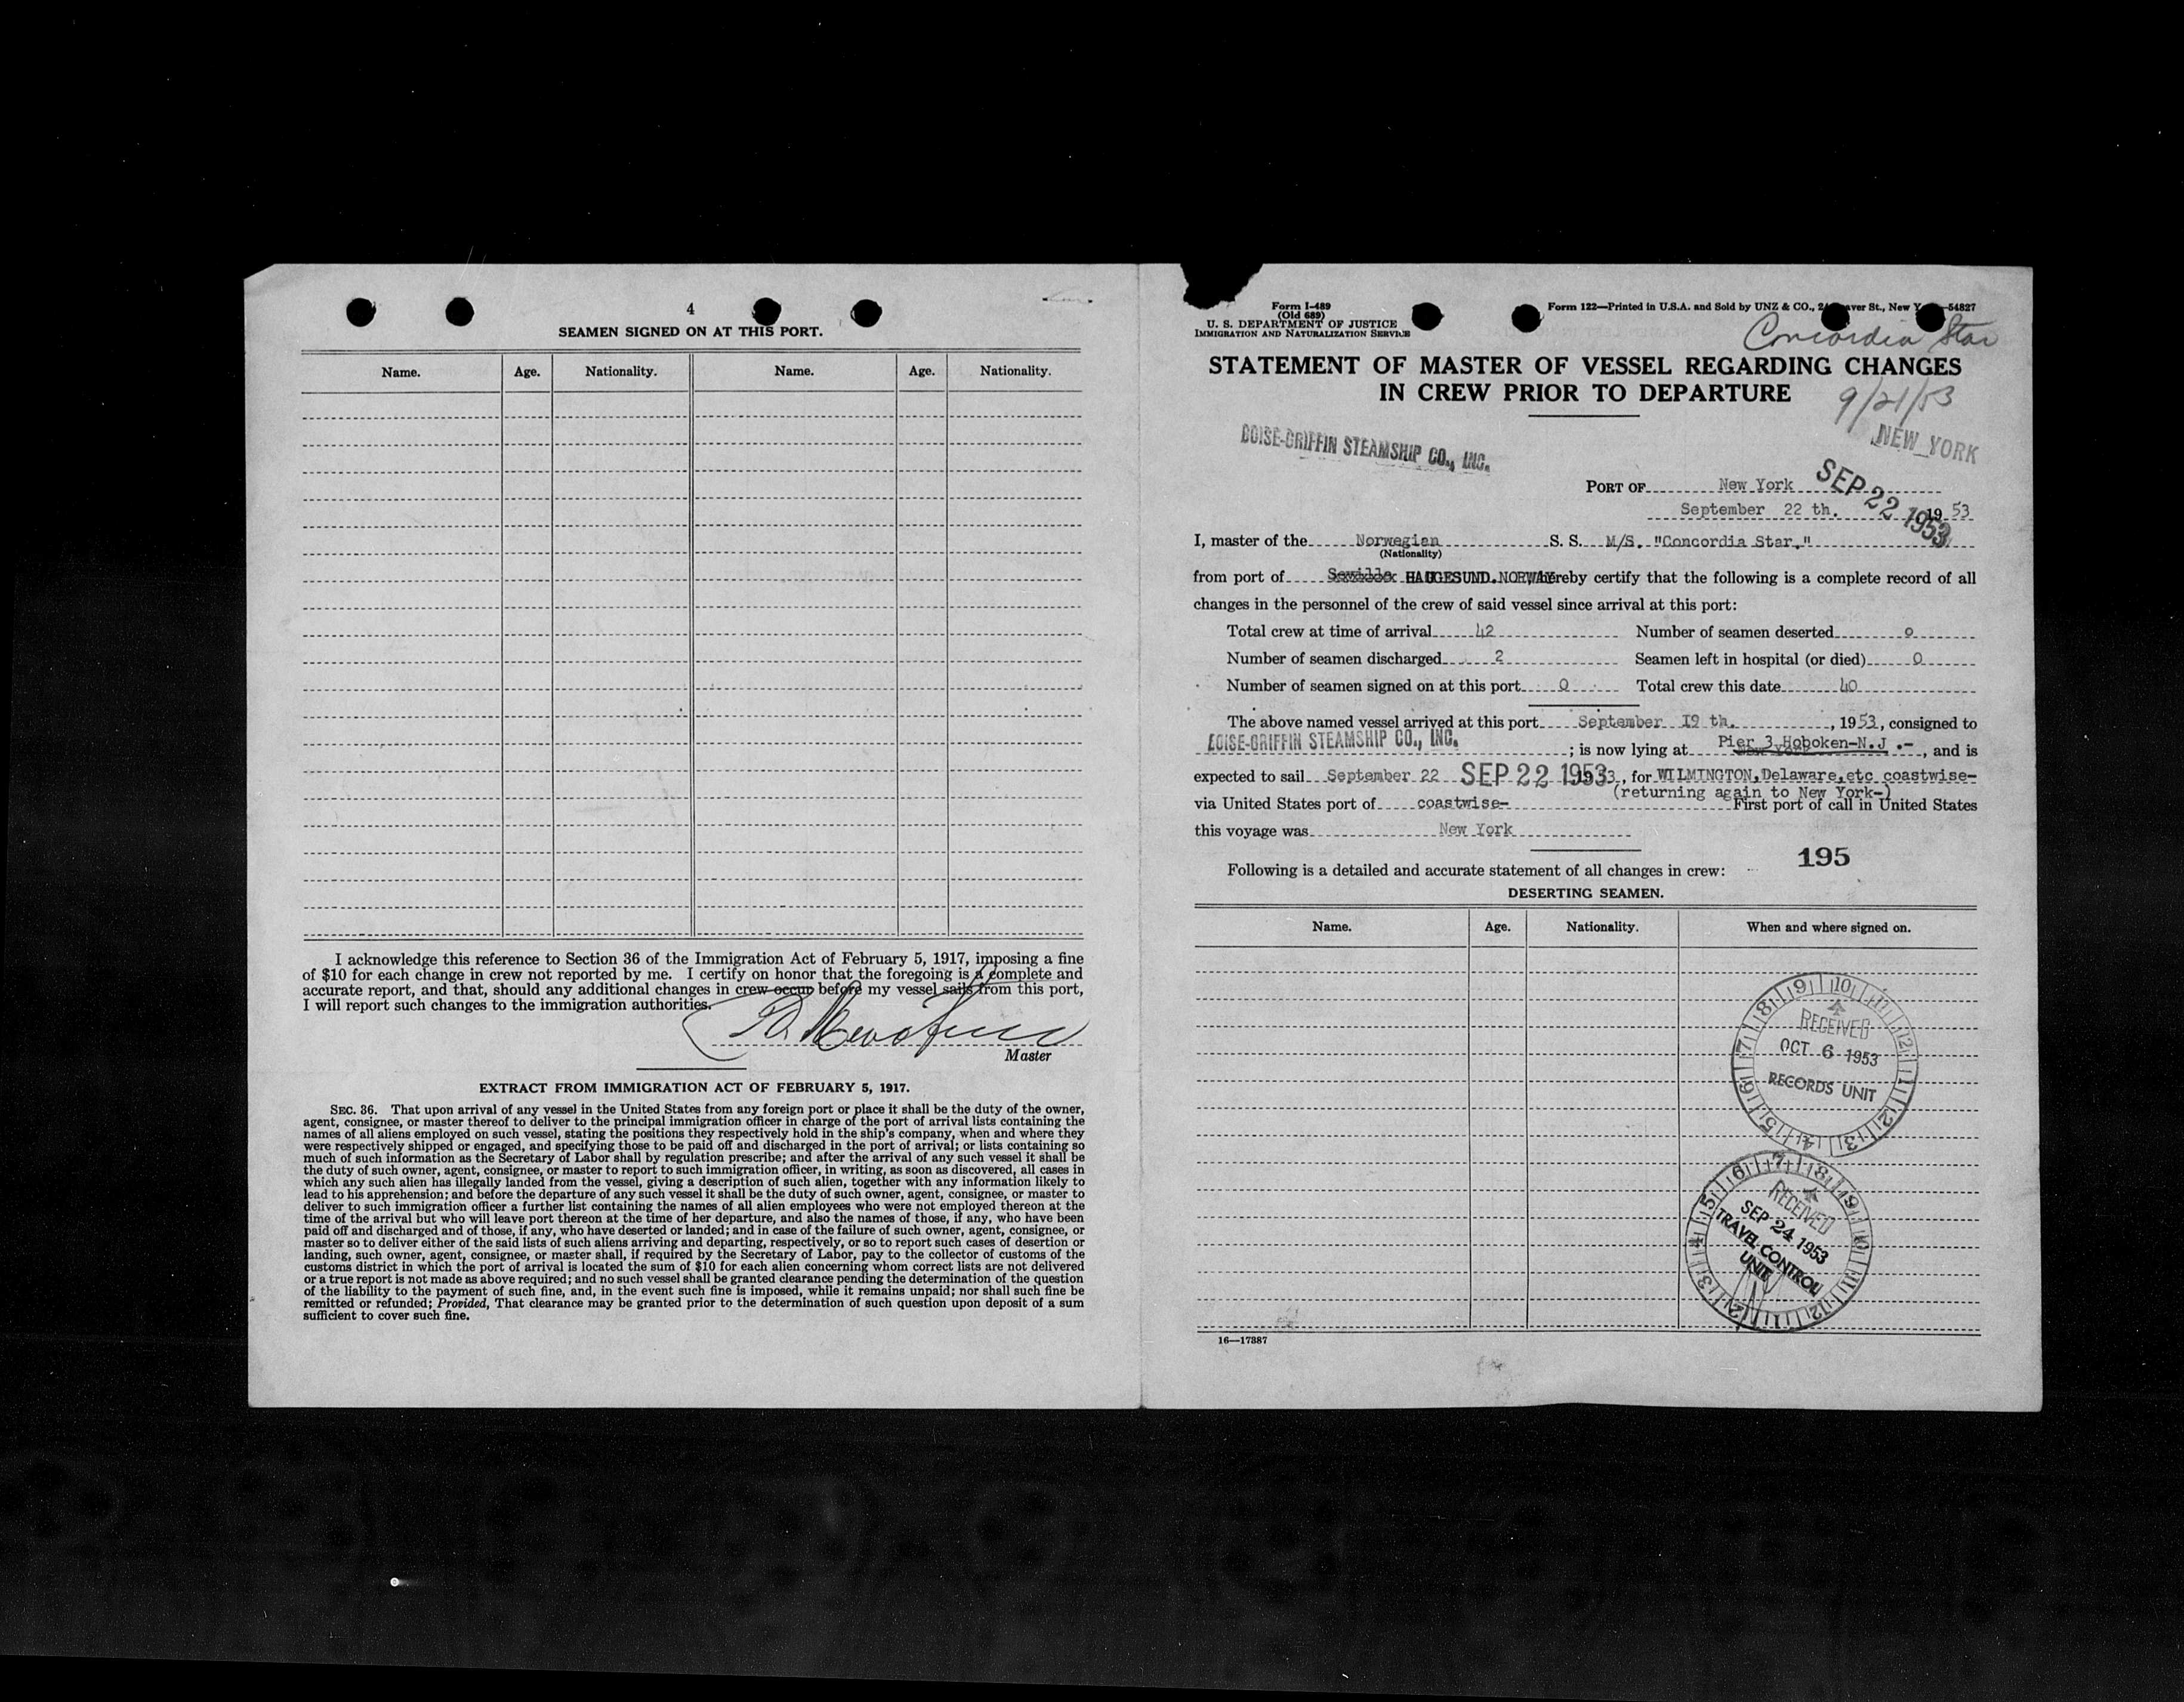 4
SEAMEN SIGNED ON AT THIS PORT.
Name. Age. Nationality. Name. Age. Nationality.
I acknowledge this reference to Section 36 of the Immigration Act of February 5, 1917, imposing a fine
of $10 for each change in crew not reported by me. I certify on honor that the foregoing is a complete and
accurate report, and that, should any additional changes in crew occur before my vessel sails from this port,
I will report such changes to the immigration authorities.
Master
EXTRACT FROM IMMIGRATION ACT OF FEBRUARY 5, 1917.
SEC. 36. That upon arrival of any vessel in the United States from any foreign port or place it shall be the duty of the owner,
agent, consignee, or master thereof to deliver to the principal immigration officer in charge of the port of arrival lists containing the
names of all aliens employed on such vessel, stating the positions they respectively hold in the ship's company, when and where they
were respectively shipped or engaged, and specifying those to be paid off and discharged in the port of arrival; or lists containing so
much of such information as the Secretary of Labor shall by regulation prescribe; and after the arrival of any such vessel it shall be
the duty of such owner, agent, consignee, or master to report to such immigration officer, in writing, as soon as discovered, all cases in
which any such alien has illegally landed from the vessel, giving a description of such alien, together with any information likely to
lead to his apprehension; and before the departure of any such vessel it shall be the duty of such owner, agent, consignee, or master to
deliver to such immigration officer a further list containing the names of all alien employees who were not employed thereon at the
time of the arrival but who will leave port thereon at the time of her departure, and also the names of those, if any, who have been
paid off and discharged and of those, if any, who have deserted or landed; and in case of the failure of such owner, agent, consignee, or
master so to deliver either of the said lists of such aliens arriving and departing, respectively, or so to report such cases of desertion or
landing, such owner, agent, consignee, or master shall, if required by the Secretary of Labor, pay to the collector of customs of the
customs district in which the port of arrival is located the sum of $10 for each alien concerning whom correct lists are not delivered
or a true report is not made as above required; and no such vessel shall be granted clearance pending the determination of the question
of the liability to the payment of such fine, and, in the event such fine is imposed, while it remains unpaid; nor shall such fine be
remitted or refunded; Provided, That clearance may be granted prior to the determination of such question upon deposit of a sum
sufficient to cover such fine.
Form I-489
(Old 689)
U. S. DEPARTMENT OF JUSTICE
IMMIGRATION AND NATURALIZATION SERVICE
Form 122—Printed in U.S.A. and Sold by UNZ & CO., St., New 54827
Concordia Star
STATEMENT OF MASTER OF VESSEL REGARDING CHANGES
IN CREW PRIOR TO DEPARTURE
9/21/53
NEW YORK
BOISE-GRIFFIN STEAMSHIP CO., INC.
PORT OF New York SEP 22 1953
September 22 th. 1953
I, master of the Norwegian S. S. M/S. "Concordia Star,"
(Nationality)
from port of HAUGESUND.NORWAY hereby certify that the following is a complete record of all
changes in the personnel of the crew of said vessel since arrival at this port:
Total crew at time of arrival 42 Number of seamen deserted 0
Number of seamen discharged 2 Seamen left in hospital (or died) 0
Number of seamen signed on at this port 0 Total crew this date 40
The above named vessel arrived at this port September 19 th. , 1953, consigned to
BOISE-GRIFFIN STEAMSHIP CO., INC. ; is now lying at Pier 3 Hoboken-N.J .- , and is
expected to sail September 22 SEP 22 1953 1953, for WILMINGTON,Delaware,etc coastwise-
(returning again to New York-)
via United States port of coastwise- First port of call in United States
this voyage was New York
195
Following is a detailed and accurate statement of all changes in crew:
DESERTING SEAMEN.
Name. Age. Nationality. When and where signed on.
9 10 11 12 1 2 3 4 5 6 7 8
RECEIVED
OCT 6 1953
RECORDS UNIT
6 7 8 9 10 11 12 1 2 3 4 5
RECEIVED
SEP 24 1953
TRAVEL CONTROL
UNIT
16—17887